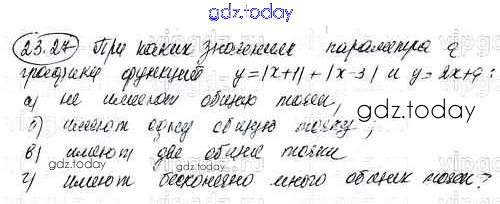 gdz.today
23.27 При каких значениях параметра q
графики функций y=|x+1|+|x-3| и y=2x+q:
а) не имеют общих точек,
gdz.today
б) имеют одну общую точку,
в) имеют две общие точки
г) имеют бесконечно много общих точек?
gdz.today